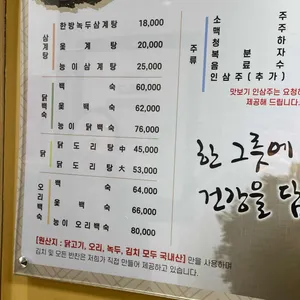 삼계탕
한방녹두삼계탕 18,000
옻계탕 20,000
능이삼계탕 25,000
닭백숙
백숙 60,000
옻백숙 62,000
능이닭백숙 76,000
닭
닭도리탕中 45,000
닭도리탕大 53,000
오리백숙
백숙 64,000
옻백숙 66,000
능이오리백숙 80,000
[원산지 : 닭고기, 오리, 녹두, 김치 모두 국내산] 만을 사용하며
김치 및 모든 반찬은 저희가 직접 만들어 제공하고 있습니다.
주류
소주
맥주
청하
복분자
음료수
인삼주(추가)
맛보기 인삼주는 요청하
제공해 드립니다.
한 그릇에
건강을 담